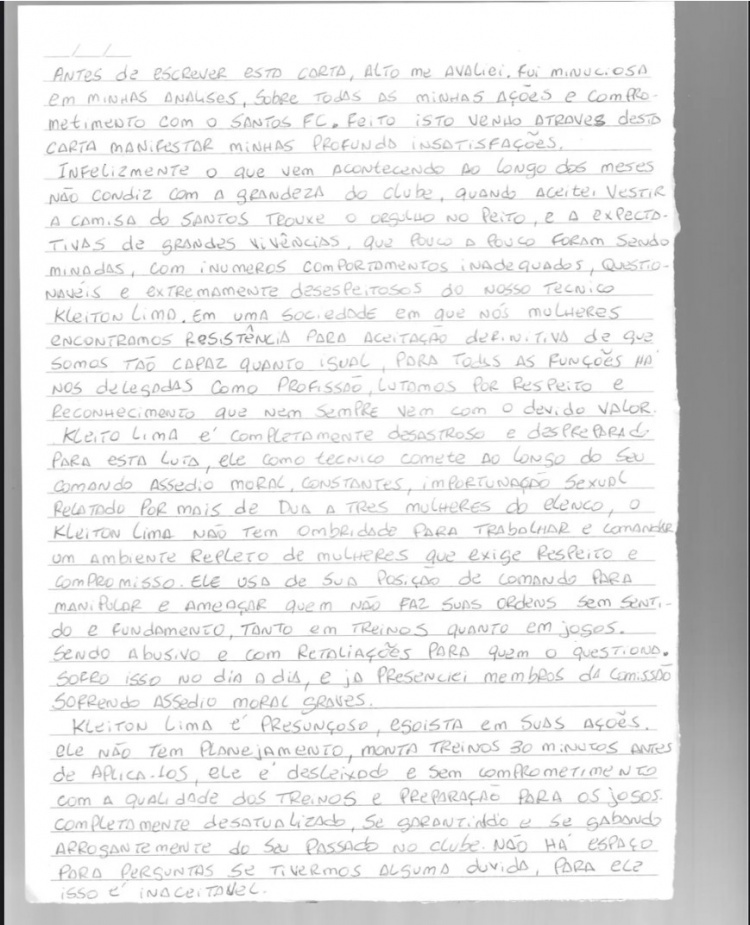 __/__/__
ANTES de escrever esta CARTA, ALTO me AVALIEI. fui MINUCIOSA
em MINHAS ANALISES, SOBRE TODAS AS MINHAS AÇÕES e COMPRO-
metimento com o SANTOS FC. FEITO ISTO VENHO ATRAVES desta
CARTA MANIFESTAR MINHAS PROFUNDA INSATISFAÇÕES.
INFELIZMENTE O QUE VEM ACONTECENDO AO LONGO dos meses
NÃO CONDIZ COM A GRANDEZA do CLUBE, QUANDO ACEITEI VESTIR
A CAMISA do SANTOS TROUXE O ORGULHO NO PEITO, e A EXPECTA-
TIVAS de GRANDES VIVÊNCIAS. QUE POUCO A POUCO FORAM SENDO
MINADAS, COM INUMEROS COMPORTAMENTOS INADEQUADOS, QUESTIO-
NAVÉIS e EXTREMAMENTE desespeitosos do NOSSO TECNICO
KLEITON LIMA. EM UMA SOCIEDADE EM QUE NÓS MULHERES
ENCONTRAMOS RESISTÊNCIA PARA ACEITAÇÃO DEFINITIVA de QUE
SOMOS TÃO CAPAZ QUANTO IGUAL, PARA TODAS AS FUNÇÕES HÁ
NOS delegadas COMO PROFISSÃO, LUTAMOS POR RESPEITO e
RECONHECIMENTO QUE NEM SEMPRE VEM COM O devido VALOR.
KLEITO LIMA é COMPLETAMENTE DESASTROSO e DESPREPARADO
PARA ESTA LUTA, ele COMO TECNICO COMETE AO LONGO do SEU
COMANDO ASSEDIO MORAL, CONSTANTES, IMPORTUNAÇÃO SEXUAL
RELATADO POR MAIS de DUA A TRES MULHERES do ELENCO, O
KLEITON LIMA NÃO TEM OMBRIDADE PARA TRABALHAR e COMANDAR
UM AMBIENTE REPLETO de MULHERES QUE EXIGE RESPEITO e
COMPROMISSO. ELE USA de SUA POSIÇÃO de COMANDO PARA
MANIPULAR e AMEAÇAR QUEM NÃO FAZ SUAS ORDENS SEM SENTI-
do e FUNDAMENTO, TANTO em TREINOS QUANTO em JOGOS.
SENDO ABUSIVO e COM RETALIAÇÕES PARA QUEM O QUESTIONA.
SOFRO ISSO NO DIA A DIA, e JA PRESENCIEI MEMBROS DA COMISSÃO
SOFRENDO ASSEDIO MORAL GRAVES.
KLEITON LIMA É PRESUNÇOSO, EGOISTA em SUAS AÇÕES.
ele NÃO TEM PLANEJAMENTO, MONTA TREINOS 30 MINUTOS ANTES
de APLICA-LOS, ele é desleixado e SEM COMPROMETIMENTO
COM A QUALIDADE DOS TREINOS e PREPARAÇÃO PARA OS JOGOS.
COMPLETAMENTE DESATUALIZADO, SE GARANTINDO e SE GABANDO
ARROGANTEMENTE do SEU PASSADO NO CLUBE. NÃO HÁ ESPAÇO
PARA PERGUNTAS SE TIVERMOS ALGUMA DUVIDA, PARA ELE
ISSO É INACEITAVEL.